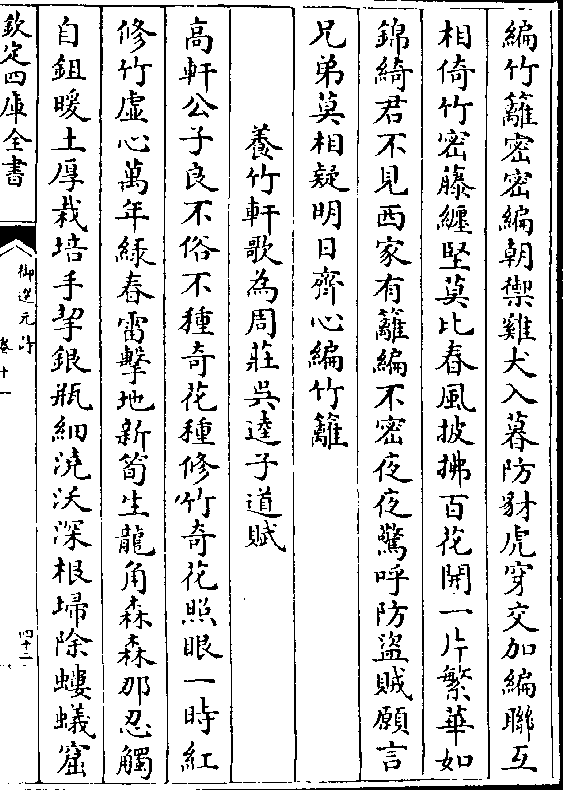 編竹籬密密編朝禦雞犬入暮防豺虎穿交加編聯互
相倚竹密藤纏堅莫比春風披拂百花開一片繁華如
錦綺君不見西家有籬編不密夜夜驚呼防盜賊願言
兄弟莫相疑明日齊心編竹籬
養竹軒歌為周莊吳逵子道賦
高軒公子良不俗不種奇花種修竹奇花照眼一時紅
修竹虛心萬年緑春雷擊地新筍生龍角森森那忍觸
自鉏暖土厚栽培手挈銀瓶細澆沃深根埽除螻蟻窟
欽定四庫全書
御選元詩
卷十一
四十二